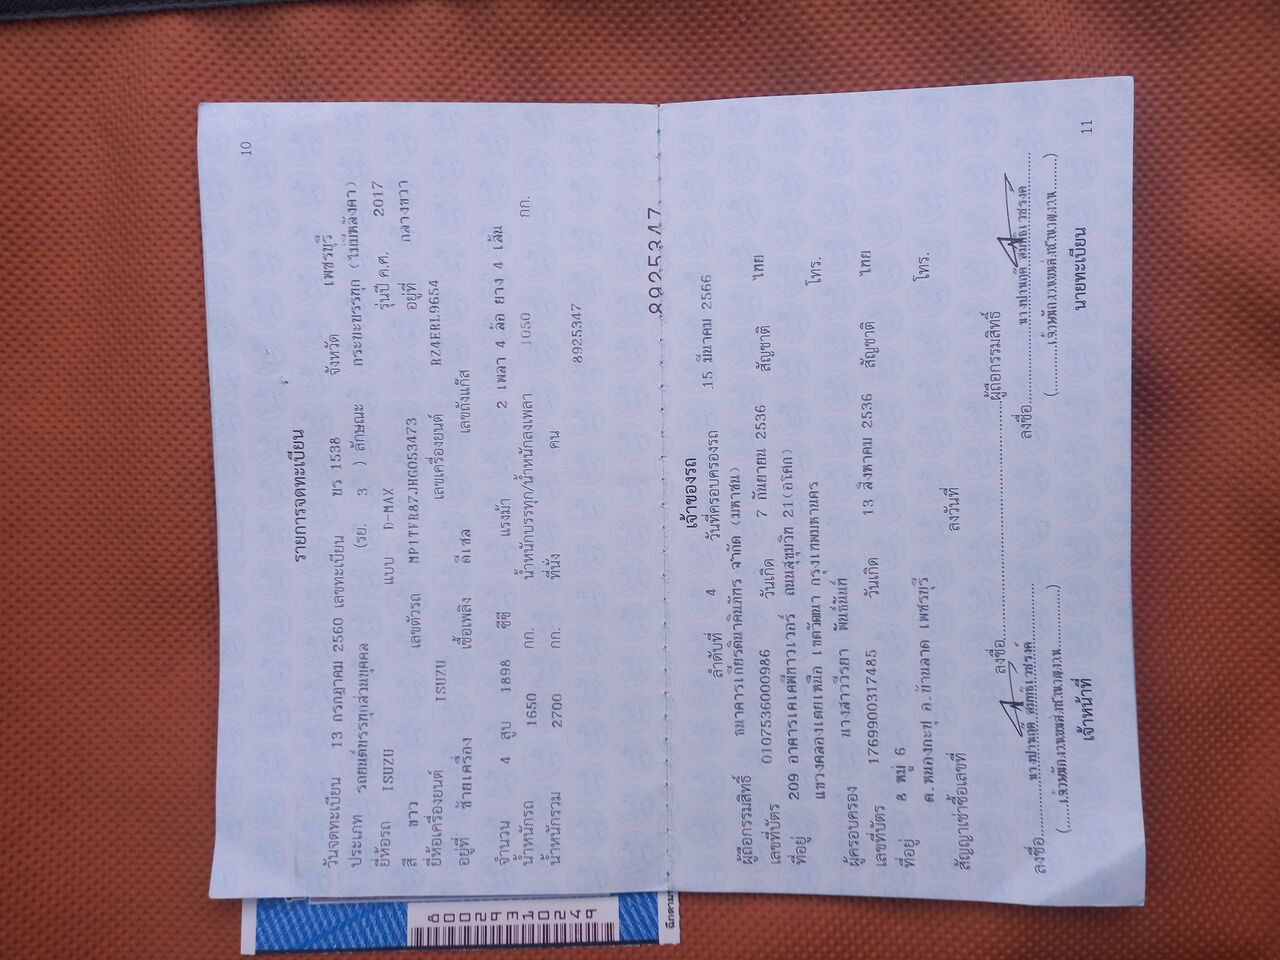 10
รายการจดทะเบียน
วันจดทะเบียน 13 กรกฎาคม 2560 เลขทะเบียน ขร 1538 จังหวัด เพชรบุรี
ประเภท รถยนต์บรรทุกส่วนบุคคล (รย. 3 ) ลักษณะ กระบะบรรทุก (ไม่มีหลังคา)
ยี่ห้อรถ ISUZU แบบ D-MAX รุ่นปี ค.ศ. 2017
สี ขาว เลขตัวรถ MP1TFR87JHG053473 อยู่ที่ กลางขวา
ยี่ห้อเครื่องยนต์ ISUZU เลขเครื่องยนต์ RZ4ERL9654
อยู่ที่ ซ้ายเครื่อง เชื้อเพลิง ดีเซล เลขถังแก๊ส
จำนวน 4 สูบ 1898 ซีซี แรงม้า 2 เพลา 4 ล้อ ยาง 4 เส้น
น้ำหนักรถ 1650 กก. น้ำหนักบรรทุก/น้ำหนักลงเพลา 1050 กก.
น้ำหนักรวม 2700 กก. ที่นั่ง คน
8925347
8925347
เจ้าของรถ
ลำดับที่ 4 วันที่ครอบครองรถ 15 มีนาคม 2566
ผู้ถือกรรมสิทธิ์ ธนาคารเกียรตินาคินภัทร จำกัด (มหาชน)
เลขที่บัตร 0107536000986 วันเกิด 7 กันยายน 2536 สัญชาติ ไทย
ที่อยู่ 209 อาคารเคเคพีทาวเวอร์ ถนนสุขุมวิท 21(อโศก)
แขวงคลองเตยเหนือ เขตวัฒนา กรุงเทพมหานคร โทร.
ผู้ครอบครอง นางสาววีรยา พันธ์นันท์
เลขที่บัตร 1769900317485 วันเกิด 13 สิงหาคม 2536 สัญชาติ ไทย
ที่อยู่ 8 หมู่ 6
ต.หนองกะปุ อ.บ้านลาด เพชรบุรี โทร.
สัญญาเช่าซื้อเลขที่ ลงวันที่
ลงชื่อ ผู้ถือกรรมสิทธิ์
ลงชื่อ ลงชื่อ
(เจ้าพนักงานขนส่งชำนาญงาน) (เจ้าพนักงานขนส่งชำนาญงาน)
เจ้าหน้าที่ นายทะเบียน
11